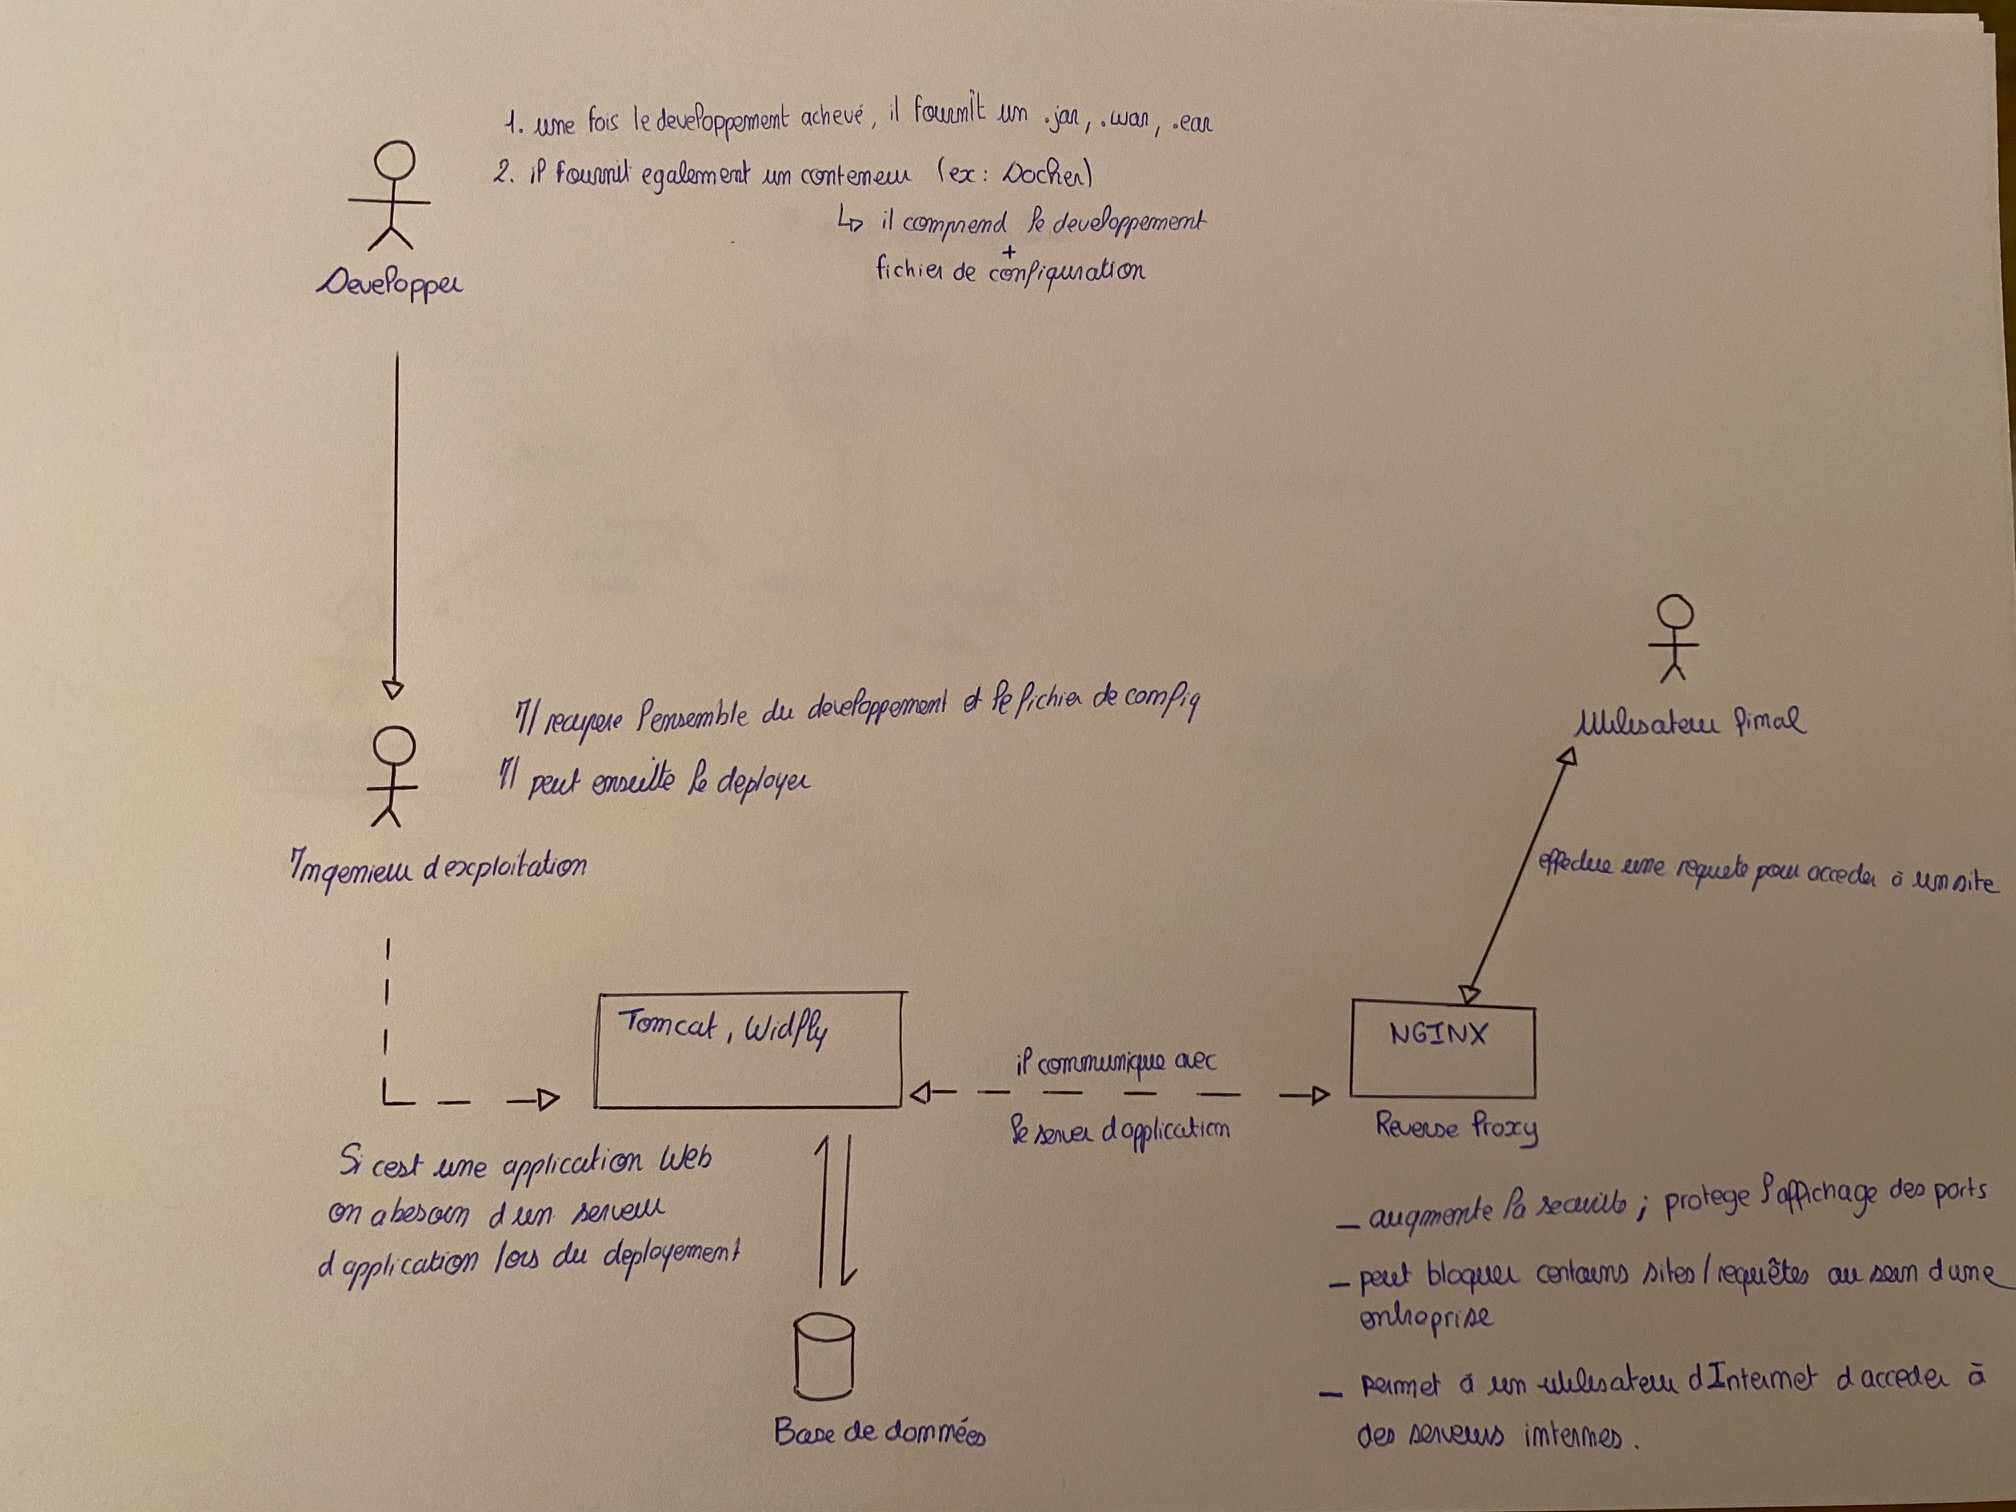 1. une fois le developpement achevé, il fournit un .jar, .war, .ear
2. il fournit egalement un conteneur (ex: Docker)
↳ il comprend le developpement
+
fichier de configuration
Developper
Il recupere l'ensemble du developpement et le fichier de config
Il peut ensuite le deployer
Ingenieur d'exploitation
Utilisateur final
effectue une requete pour acceder à un site
Tomcat, Widfly
NGINX
il communique avec
le server d'application
Reverse Proxy
Si c'est une application Web
on a besoin d'un serveur
d'application lors du deployement
Base de données
– augmente la securite ; protege l'affichage des ports
– peut bloquer certains sites/requêtes au sein d'une
entreprise
– Permet à un utilisateur d'Internet d'acceder à
des serveurs internes.